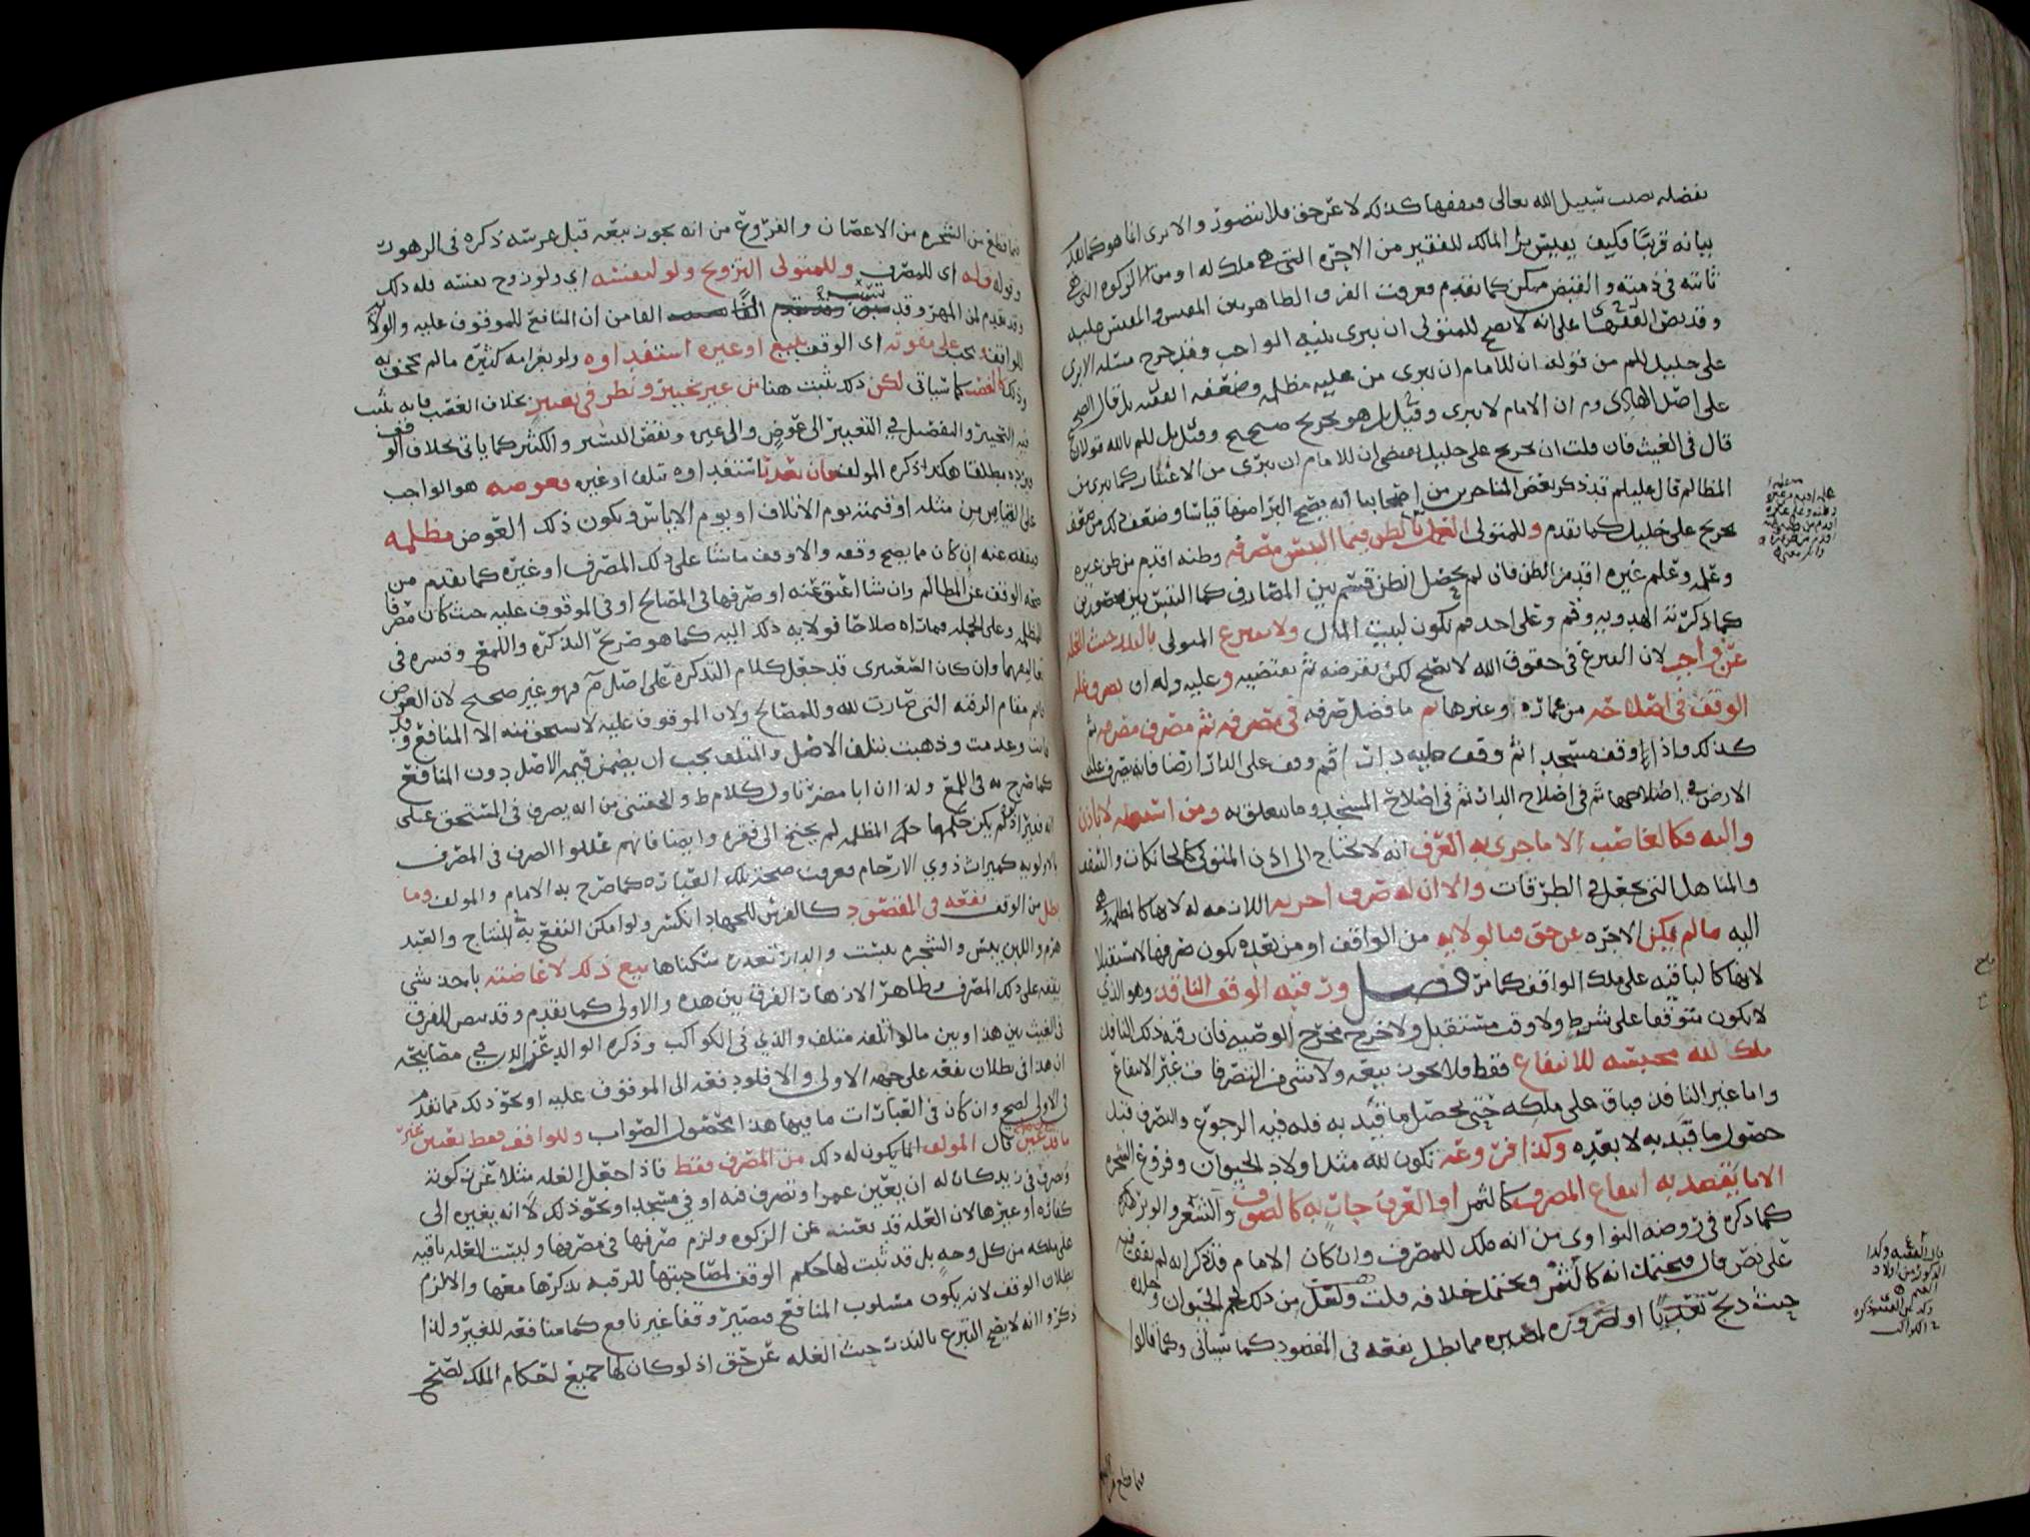 بفضله بصلت سبيل الله تعالى فيقفها كذلك لا عن حق فلا يتصور والابرى انما هو كما
بيانه قريبا وكيف يعيش برا المالك للفقير من الاجره التي هي ملك له او من الزكوه التي هي
ثابته في ذمته والقبض ممكن كما تقدم فعرفت الفرق الظاهر بين
وقد نص الفقها على انه لا يصح للمتولي ان يبرى بنيه الواجب وقد خرج مسئله الابرى
على خليل للم من قوله ان للامام ان يبرى من عليه مظلمه وضعفه الفقيه بل قال الصحيح
على اصل الهادى وم ان الامام لا يبرى وقيل بل هو تخريج صحيح وقيل بل للم بالله قولان
قال في الغيث فان قلت ان تخريج على خليل يقتضي ان للامام ان يبرى من الاعشار كما يبرى من
المظالم قال عليلم قد ذكر بعض المتاخرين من اصحابنا انه يصح البرا منها قياسا وضعف ذلك من ضعف
تخريج على خليل كما تقدم وللمتولي العمل بالظن فيما التبس مصرفه وظنه اقدم من ظن غيره
وعلمه وعلم غيره اقدم من الظن فان لم يحصل الظن قسم بين المصارف كما التبس بين محصورين
كما ذكرته الهدويه وقم وعلى احد قم يكون لبيت المال ولا يتبرع المتولي بالبذر حيث الغله
عن واجب لان التبرع في حقوق الله لا يصح لكن يقرضه ثم يقتضيه وعليه وله ان يصرف غله
الوقف في اصلاحه من عماره وغيرها ثم ما فضل صرفه في مصرفه ثم مصرف مصرفه ثم
كذلك واذا وقف مسجد اثم وقف عليه دارا ثم وقف على الدار ارضا فانه يصرف غله
الارض في اصلاحها ثم في اصلاح الدار ثم في اصلاح المسجد وما يتعلق به ومن استعمله لا باذن
واليه فكالغاصب الا ما جرى به العرف انه لا يحتاج الى اذن المتولي كالخانكات
والمناهل التي تجعل في الطرقات والا ان له صرف اجره اللازمه له لانها كالمظلمه وهي
اليه ما لم يكن الاجره عن حق فبالولايه من الواقف او من بعده يكون صرفها
لانها كالباقيه على ملك الواقف كما مر فصل ورقبه الوقف النافذ وهو الذي
لا يكون متوقفا على شرط ولا وقت مستقبل ولا خرج مخرج الوصيه فان رقبه ذلك النافذ
ملك لله محبسه للانتفاع فقط فلا يجوز بيعه ولا شي من التصرفات غير الانتفاع
واما غير النافذ فباق على ملكه حتى يحصل ما قيد به فله فيه الرجوع والتصرف قبل
حصول ما قيد به لا بعده وكذا فروعه تكون لله مثل اولاد الحيوان وفروع الشجره
الا ما يقصد به انتفاع المصرف كالثمر او العرف جار به كالصوف والشعر والوبر
كما ذكره في روضه النواوي من انه ملك للمصرف وان كان الامام قد ذكر انه لم يقف فيه
على نص قال فيحتمل انه كالثمر ويحتمل خلافه قلت ولعل من ذلك لحم الحيوان وجلده
حيث ذبح تعديا او لضروره لمصيره مما بطل نفعه في المقصود كما سياتي وكما قالوا
قال الفقيه وكذا
الذكور من اولاد
الغنم
فما قطع من
فما قطع من الشجره من الاغصان والفروع من انه يجوز بيعه قبل غرسه ذكره في الزهور
وقوله فله اى للمصرف وللمتولي التزويج ولو لنفسه اي ولو زوج نفسه فله ذلك
وقد تقدم لمن المهر وقد القا من ان المنافع للموقوف عليه والولا
للواقف يجب على مفوته اى الوقف ببيع او غيره استفداوه ولو بغرامه كثيره ما لم يجحف به
وذلك كالغصب كما سياتي لكن ذلك يثبت هنا من غير تخيير ونظر في تغيير بخلاف الغصب فانه يثبت
فيه التخيير والتفصيل في التغيير الى عوض والى غيره ونقص اليسير والكثير كما ياتي بخلاف الوقف
فيرده مطلقا هكذا ذكره المولف فان تعذر استفداوه بتلف او غيره فعوضه هو الواجب
على القابض من مثله او قيمته يوم الاتلاف او يوم الاياس ويكون ذلك العوض مظلمه
فيقفه عنه ان كان مما يصح وقفه والا وقف ما شا على ذلك المصرف او غيره كما تقدم من
صحه الوقف عن المظالم وان شا اعتق عنه او صرفها في المصالح او في الموقوف عليه حيث كان مصرفا
للمظلمه وعلى الجمله فما راه صلاحا فولايه ذلك اليه كما هو صريح التذكره واللمع وفسره في
تعاليقهما وان كان الصعيتري قد جعل كلام التذكره على اصل م فهو غير صحيح لان العوض
قايم مقام الرقبه التي صارت لله وللمصالح ولان الموقوف عليه لا يستحق منه الا المنافع وقد
فاتت وعدمت وذهبت بتلف الاصل والمتلف يجب ان يضمن قيمه الاصل دون المنافع
كما صرح به في اللمع ولذا ان ابا مضر تاول كلام ط والحقيني من انه يصرف في المستحق على
انه فقير اذ لو لم يكن حكمها حكم المظلمه لم يحتج الى فقره وايضا فانهم عللوا الصرف في المصرف
بالاولويه كميراث ذوي الارحام فعرفت صحه تلك العباره كما صرح به الامام والمولف وما
بطل من الوقف نفعه في المقصود كالفرس للجهاد انكسر ولو امكن النفع به للنتاج والعبد
هرم واللبن ييبس والشجره يبست والدار تعذر سكناها بيع ذلك لاعاضته باخذ شي
يقفه على ذلك المصرف وظاهر الازهار الفرق بين هذه والاولى كما تقدم وقد نص للفرق
في الغيث بين هذا وبين ما لو اتلفه متلف والذي في الكواكب وذكره الوالد عز الدين في مصابيحه
ان هذا في بطلان نفعه على جهه الاولى والا فلو دفعه الى الموقوف عليه او نحو ذلك مما تقدم
في الاولى لصح وان كان في العبارات ما فيها هذا محصول الصواب وللواقف فقط تعيين غير
ما قد عين قال المولف انما يكون له ذلك من المصرف فقط فاذا جعل الغله مثلا عن زكوته
وتصرف في زيد كان له ان يعين عمرا وتصرف فيه او في مسجد او نحو ذلك لا انه يغيره الى
كفاره او غيرها لان الغله قد تعينت عن الزكوه ولزم صرفها في مصرفها وليست الغله باقيه
على ملكه من كل وجه بل قد ثبت لها حكم الوقف لمصاحبتها للرقبه بذكرها معها والا لزم
بطلان الوقف لانه يكون مسلوب المنافع فيصير وقفا غير نافع كما منافعه للغير ولذا
ذكروا انه لا يصح التبرع بالبذر حيث الغله عن حق اذ لو كان لها جميع احكام الملك لصح